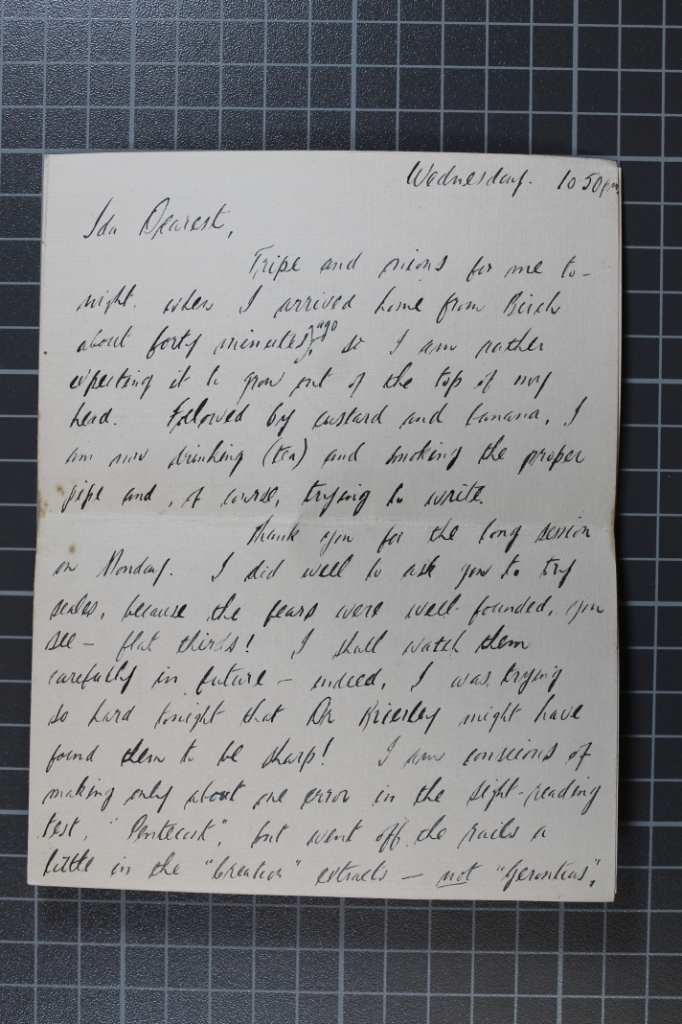 Wednesday. 10 50pm
Ida Dearest,
Tripe and onions for me to-
night. when I arrived home from Birch
about forty minutes ago so I am rather
expecting it to grow out of the top of my
head. Followed by custard and banana, I
am now drinking (tea) and smoking the proper
pipe and, of course, trying to write.
Thank you for the long session
on Monday. I did well to ask you to try
scales, because the fears were well-founded, you
see - flat thirds! I shall watch them
carefully in future - indeed, I was trying
so hard tonight that Dr Brierley might have
found them to be sharp! I am conscious of
making only about one error in the sight-reading
test, "Pentecost", but went off the rails a
little in the "Creation" extracts - not "Gerontius",